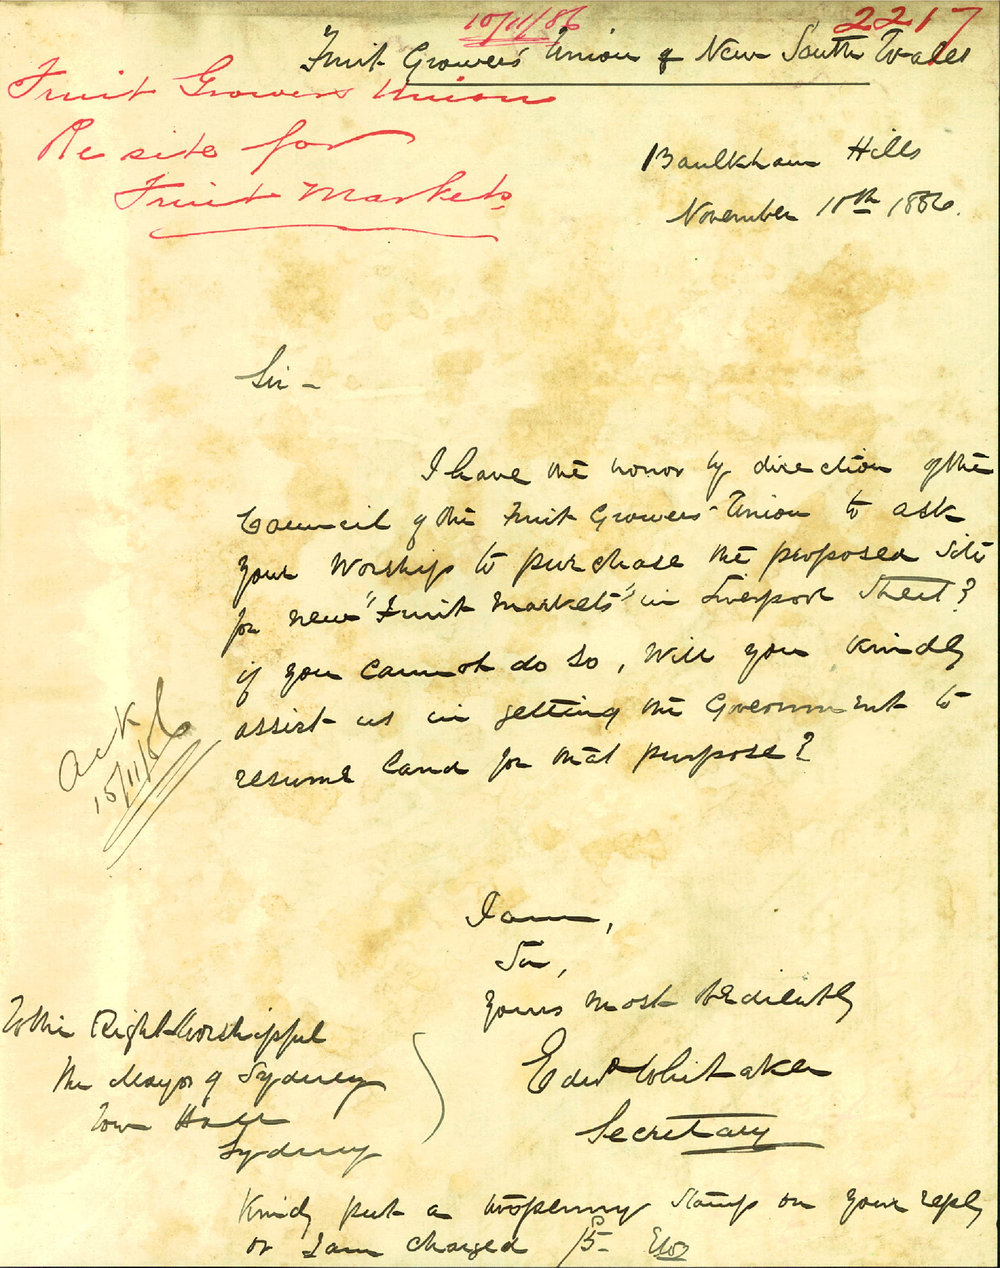 10/11/86
2217
Fruit Growers' Union of New South Wales
Fruit Growers Union
Re site for
Fruit Markets
Baulkham Hills
November 10th 1886.
Sir -
I have the honor by direction of the
Council of the Fruit Growers' Union to ask
your Worship to purchase the proposed site
for new "Fruit Markets" in Liverpool Street?
if you cannot do so, will you kindly
assist us in getting the Government to
resume land for that purpose?
Ack
15/11/86
I am,
Sir,
Yours most obediently
Edwd Whitaker
Secretary
To the Right Worshipful
The Mayor of Sydney
Town Hall
Sydney
Kindly put a twopenny stamp on your reply
or I am charged